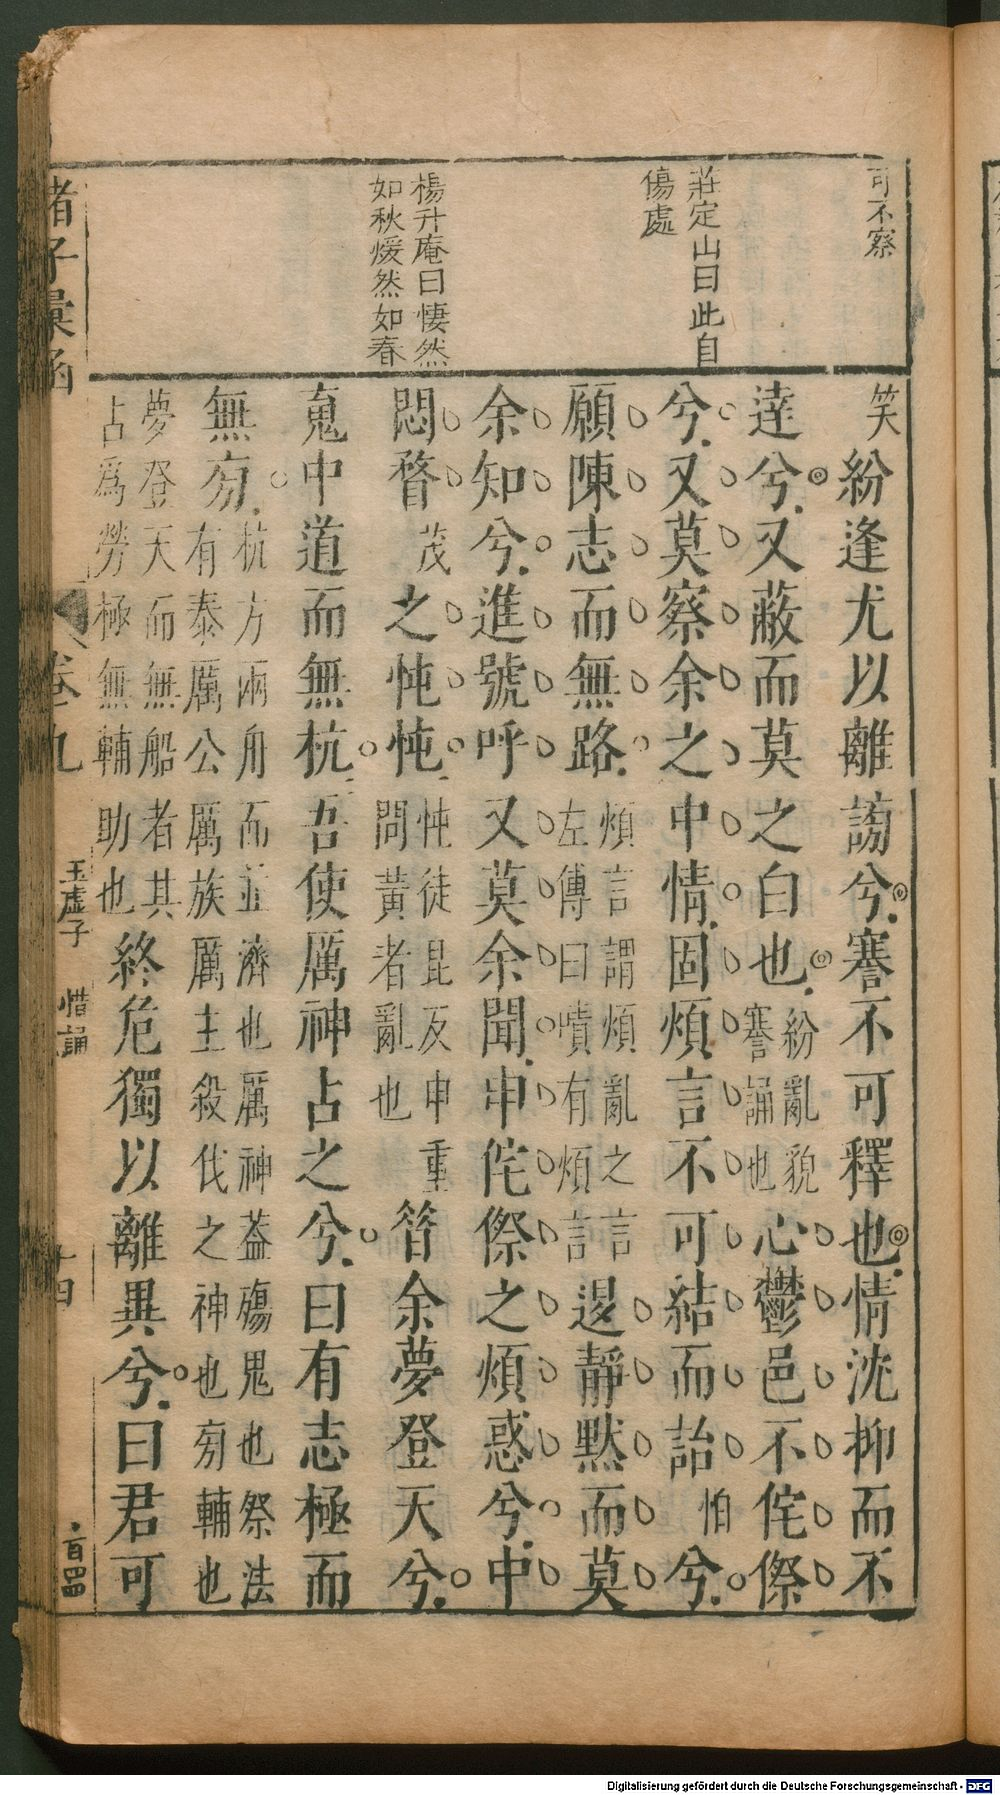 可不察
莊定山曰此自
傷處
楊升庵曰悽然
如秋煖然如春
笑
紛逢尤以離謗兮謇不可釋也情沈抑而不
逹兮又蔽而莫之白也
紛亂貌
謇誦也
心鬱邑不侘傺
兮又莫察余之中情固煩言不可結而詒怕兮
願陳志而無路
煩言謂煩亂之言
左傳曰嘖有煩言
退靜默而莫
余知兮進號呼又莫余聞申侘傺之煩惑兮中
悶瞀茂之忳忳
忳徒昆反申重
問黃者亂也
昝余夢登天兮
䰟中道而無杭吾使厲神占之兮曰有志極而
無㫄
杭方兩舟而並濟也厲神葢殤鬼也祭法
有泰厲公厲族厲主殺伐之神也㫄輔也
夢登天而無船者其
占爲勞極無輔助也
終危獨以離異兮曰君可
諸子彙函
卷九
玉虛子
惜誦
十四
Digitalisierung gefördert durch die Deutsche Forschungsgemeinschaft - DFG